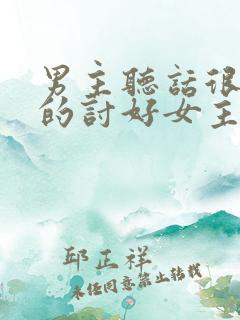 男主聽話很
的討好女主
邱正祥
未經同意禁止轉載